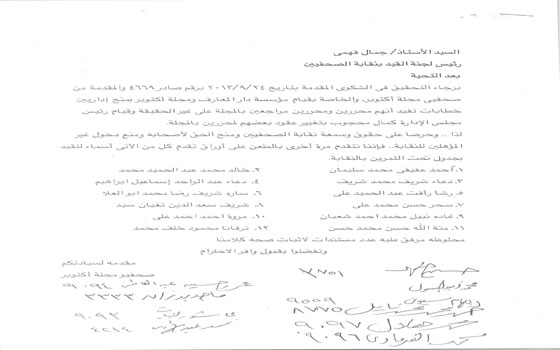 السيد الأستاذ/ جمال فهمى
رئيس لجنة القيد بنقابة الصحفيين
بعد التحية
برجاء التحقيق فى الشكوى المقدمة بتاريخ ٢٠١٣/٩/٢٤ برقم صادر ٤٦٦٩ والمقدمة من
صحفيى مجلة أكتوبر، والخاصة بقيام مؤسسة دار المعارف ومجلة أكتوبر بمنح إداريين
خطابات تفيد أنهم محررين ومحررين مراجعين بالمجلة على غير الحقيقة وقيام رئيس
مجلس الإدارة كمال محجوب بتغيير عقود بعضهم لمحررين بالمجلة
لذا .. وحرصا على حقوق وسمعة نقابة الصحفيين ومنح الحق لأصحابه ومنع دخول غير
المؤهلين للنقابة.. فإننا نتقدم مرة أخرى بالطعن على أوراق تقدم كل من الاتى أسماء للقيد
بجدول تحت التمرين بالنقابة.
١. أحمد عفيفى محمد سليمان ٢. خالد محمد عبد الحميد محمد
٣. دعاء شريف محمد شريف ٤. دعاء عبد الواحد إسماعيل ابراهيم
٥. رشا رأفت عبد الحميد على ٦. ساره شريف رضا محمد ابو العلا
٧. سحر حسن محمد على ٨. شريف سعد الدين تغيان سيد
٩. غاده نبيل محمد احمد شعبان ١٠. مروة احمد احمد على
١١. منة الله حسن محمد حسن ١٢. نرفانا محمود خلف محمد
ملحوظه مرفق طيه عدد مستندات لاثبات صحه كلامنا
وتفضلوا بقبول وافر الاحترام
مقدمه لسيادتكم
صحفيو مجلة أكتوبر
٧٧٥١
٩٠٩٤
٣٣٣٣
٩٥٥٩
٨٧٧٥
٩٠٩٢
٤٢١٤
٩٠٩٧
٩٠٩٦